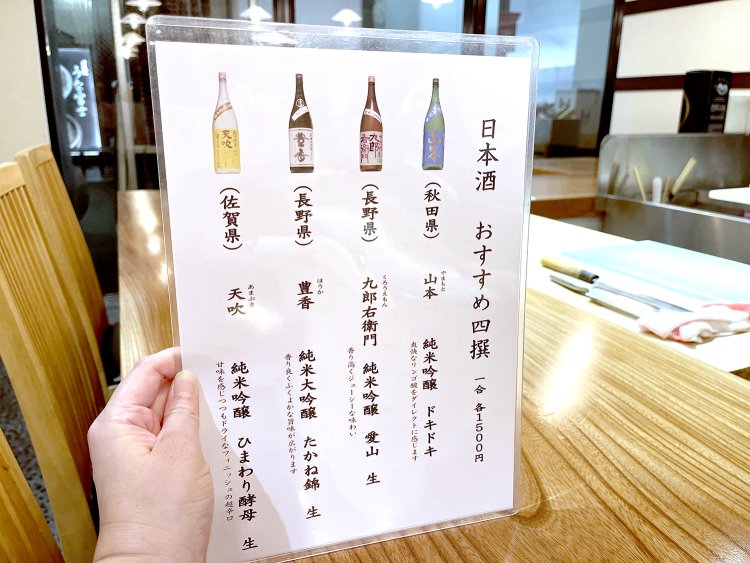 日本酒　おすすめ四撰　一合 各1500円
（秋田県）　山本　純米吟醸　ドキドキ
やまもと
爽快なリンゴ酸をダイレクトに感じます
（長野県）　九郎右衛門　純米吟醸　愛山　生
くろうえもん
香り高くジューシーな味わい
（長野県）　豊香　純米大吟醸　たかね錦　生
ほうか
香り良くふくよかな旨味が広がります
（佐賀県）　天吹　純米吟醸　ひまわり酵母　生
あまぶき
甘味を感じつつもドライなフィニッシュの超辛口
山本
九郎
右衛門
豊香
天吹